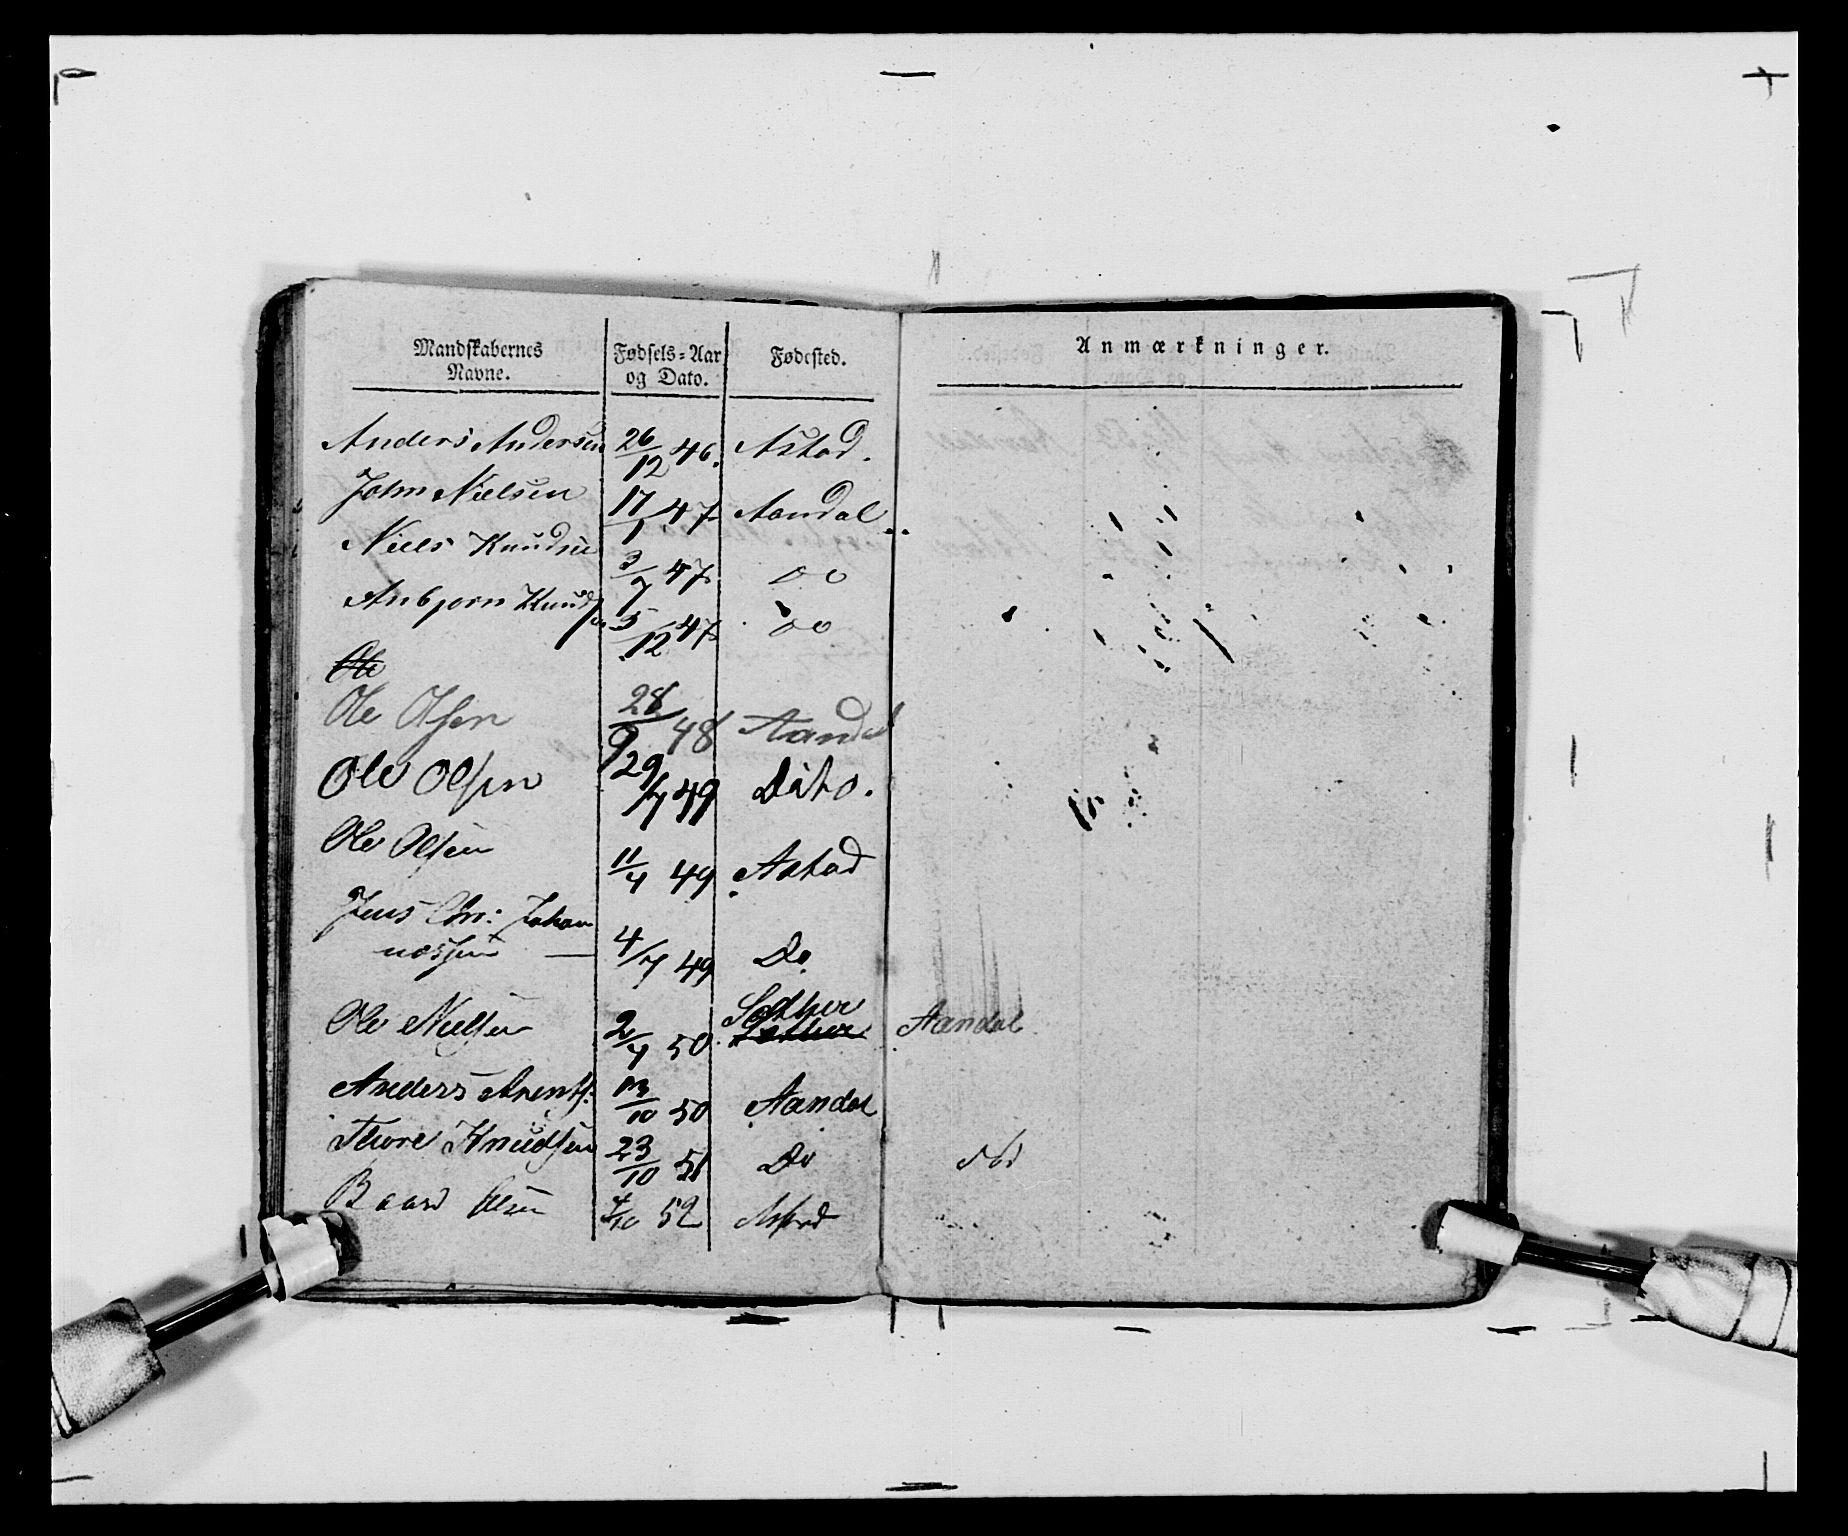 Mandskabernes Navne. Fødsels=Aar og Dato. Fødested. Anmærkninger.
Anders Andersen 26/12 46. Astad.
John Nielsen 17/1 47 Aandal
Niels Knudsen 3/7 47 do
Anbjørn Knudsen 5/12 47 do
Ole
Ole Olsen 28/9 48 Aandal
Ole Olsen 29/7 49 Dito.
Ole Olsen 11/4 49 Astad
Jens Chr: Johan
nessen — 4/7 49 Do
Ole Nielsen 2/4 50 Aandal
Anders Arents: 13/10 50 Aandal
Thore Knudsen 23/10 51 Do
Baard Olsen 4/10 52